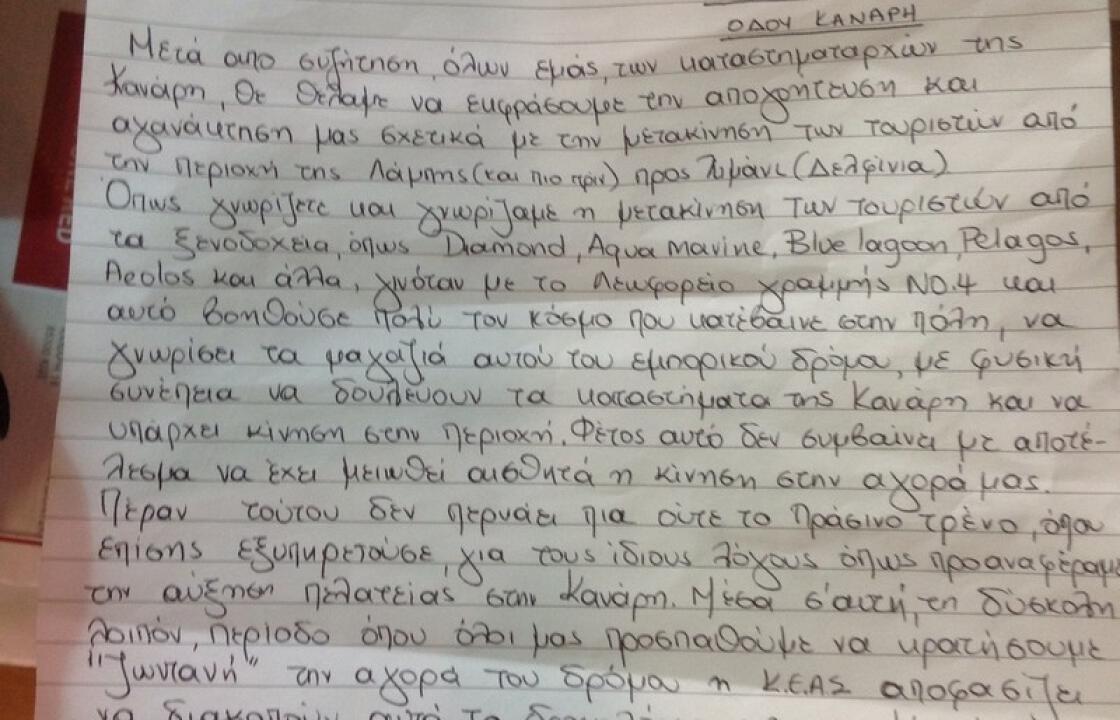 ΟΔΟΥ ΚΑΝΑΡΗ
Μετά απο συζήτηση, όλων εμάς, των καταστηματαρχών της
Κανάρη, θε θέλαμε να εκφράσουμε την απογοήτευση και
αγανάκτηση μας σχετικά με την μετακίνηση των τουριστών από
την περιοχή της Λάμπης (και πιο πριν) προς λιμάνι (Δελφίνια)
Όπως γνωρίζετε και γνωρίζαμε η μετακίνηση των τουριστών από
τα ξενοδοχεία, όπως Diamond, Aqua marine, Blue lagoon, Pelagos,
Aeolos και άλλα, γινόταν με το λεωφορείο γραμμής NO.4 και
αυτό βοηθούσε πολύ τον κόσμο που κατέβαινε στην πόλη, να
γνωρίσει τα μαγαζιά αυτού του εμπορικού δρόμου, με φυσική
συνέπεια να δουλεύουν τα καταστήματα της Κανάρη και να
υπάρχει κίνηση στην περιοχή. Φέτος αυτό δεν συμβαίνει με αποτέ-
λεσμα να έχει μειωθεί αισθητά η κίνηση στην αγορά μας.
Πέραν τούτου δεν περνάει πια ούτε το πράσινο τρένο, όπου
επίσης εξυπηρετούσε, για τους ίδιους λόγους όπως προαναφέραμε
την αύξηση πελατείας στην Κανάρη. Μέσα σ'αυτή, τη δύσκολη
λοιπόν, περίοδο όπου όλοι μας προσπαθούμε να κρατήσουμε
"ζωντανή" την αγορά του δρόμου η Κ.Ε.ΑΣ αποφασίζει
να διακοπούν αυτά τα